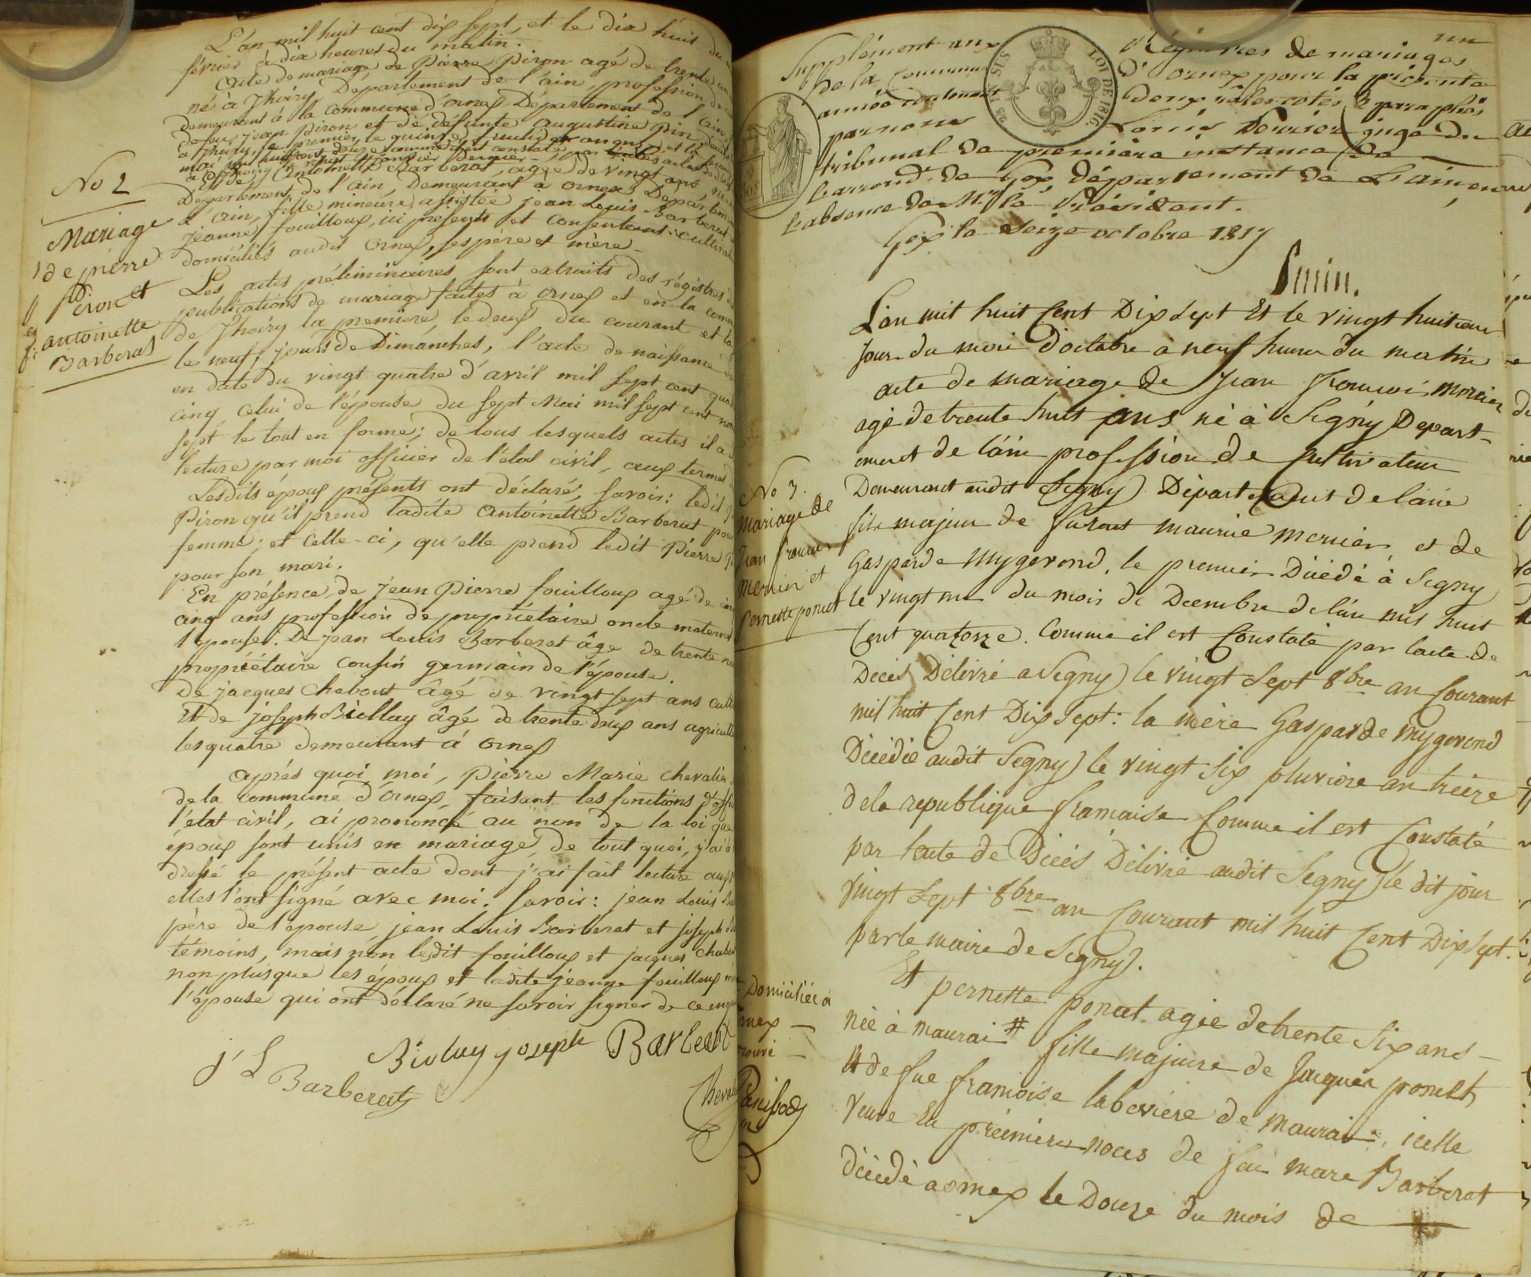 L'an mil huit cent dix sept, et le dix huit du
février à dix heures du matin.
acte de mariage de Pierre Piron agé de trente
né à Thoiry Département de l'ain profession de
demeurant à la commune d'ornex Département de l'ain
de feu jean Piron et de défunte augustine
Et de Antoinette Barberat, agée de vingt ans, née
Département de l'ain, demeurant à ornex Départem
l'ain, fille mineure assistée jean Louis Barberat
jeanne fouilloux, ici présents et consentant cultivat
domiciliés audit ornex, ses père et mère.
No 2
Mariage
de pierre
Piron et
antoinette
Barberat
Les actes préliminaires, sont extraits des régistres
publications de mariage faites à ornex et en la com
de Thoiry la première, le deux du courant et la
le neuf, jours de Dimanches, l'acte de naissance
en date du vingt quatre d'avril mil sept cent qua
cinq celui de l'épouse du sept Mai mil sept cent
sept le tout en forme; de tous lesquels actes il a
lecture par moi officier de l'état civil, aux termes
Lesdits époux présents ont déclaré, savoir: ledit
Piron qu'il prend ladite antoinette Barberat pou
femme; et celle-ci, qu'elle prend ledit Pierre
pour son mari.
En présence de jean Pierre fouilloux agé de
cinq ans profession de propriétaire oncle maternel
l'épouse. De jean Louis Barberat âgé de trente
propriétaire cousin germain de l'épouse.
de jacques Chabout âgé de vingt sept ans cult
Et de joseph Biellay âgé de trente deux ans agricult
les quatre demeurant à ornex
après quoi moi, pierre Marie chevalier
de la commune d'ornex, faisant les fonctions d'offi
l'état civil, ai prononcé au nom de la loi que
époux sont unis en mariage, de tout quoi, j'ai
dressé le présent acte dont j'ai fait lecture aux
elles l'ont signé avec moi. savoir: jean Louis
père de l'épouse jean Louis Barberat et joseph
témoins, mais non ledit fouilloux et jacques Chabou
non plus que les époux et ladite jeanne fouilloux
l'épouse qui ont déclaré ne savoir signer de ce
j L Barberat
joseph Barberat
Supplément aux Régistres de mariages
de la Commune d'ornex pour la présente
année contenant deux rôles cotés & paraphés
par nous Louis Perrier juge du
tribunal de première instance de
l'arrond.t de Gex département de L'ain en
l'absence de Mr le Président.
Gex le Seize octobre 1817
No 3.
mariage de
jean francois
mercier et
Pernette ponset
L'an mil huit Cent Dix Sept Et le vingt huitieme
jour du mois d'octobre à neuf heures du matin
acte de mariage de jean francois mercier
agé de trente huit ans né à Segny Depart-
ement de l'ain profession de Cultivateur
Demeurant audit Segny Département de l'ain
fils majeur de feu maurice mercier et de
Gasparde mygerond. le premier Décédé à Segny
le vingt du mois de Decembre de l'an mil huit
Cent quatorze. Comme il est Constaté par l'acte de
Décés Délivré a Segny le vingt Sept 8bre an Courant
mil huit Cent Dix Sept: la mére Gasparde mygerond
Décédée audit Segny le vingt six pluviose an treize
de la republique francaise Comme il est Constaté
par l'acte de Décés Délivré audit Segny le dit jour
vingt Sept 8bre an Courant mil huit Cent Dix Sept.
par le maire de Segny.
Et pernette ponset agée de trente Six ans -
née à maurai # fille majeure de Jacques ponset
# de fue francoise laberriere de maurai, icelle
veuve En premieres noces de feu marc Barberat
décédé a ornex le Douze du mois de
# Domiciliée à
ornex